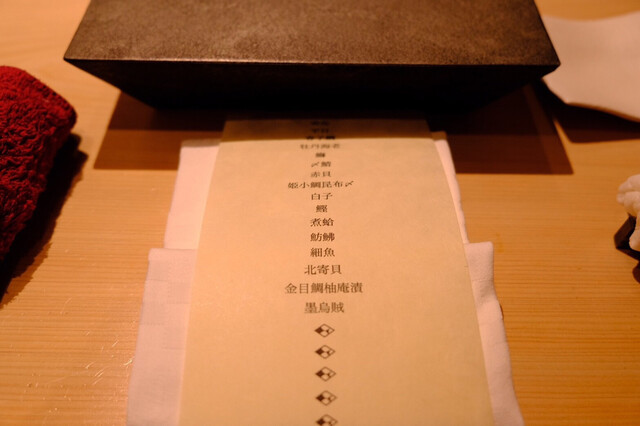 牡丹海老
〆鯖
赤貝
姫小鯛昆布〆
白子
鰹
煮蛤
魴鮄
細魚
北寄貝
金目鯛柚庵漬
墨烏賊